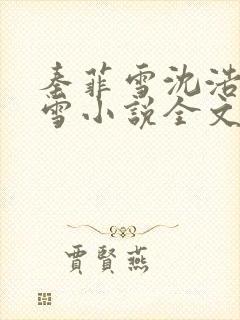 秦菲雪沈浩
雪小说全文
贾賢燕